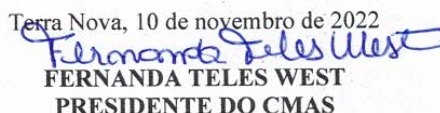 Terra Nova, 10 de novembro de 2022
Fernanda Teles West
FERNANDA TELES WEST
PRESIDENTE DO CMAS